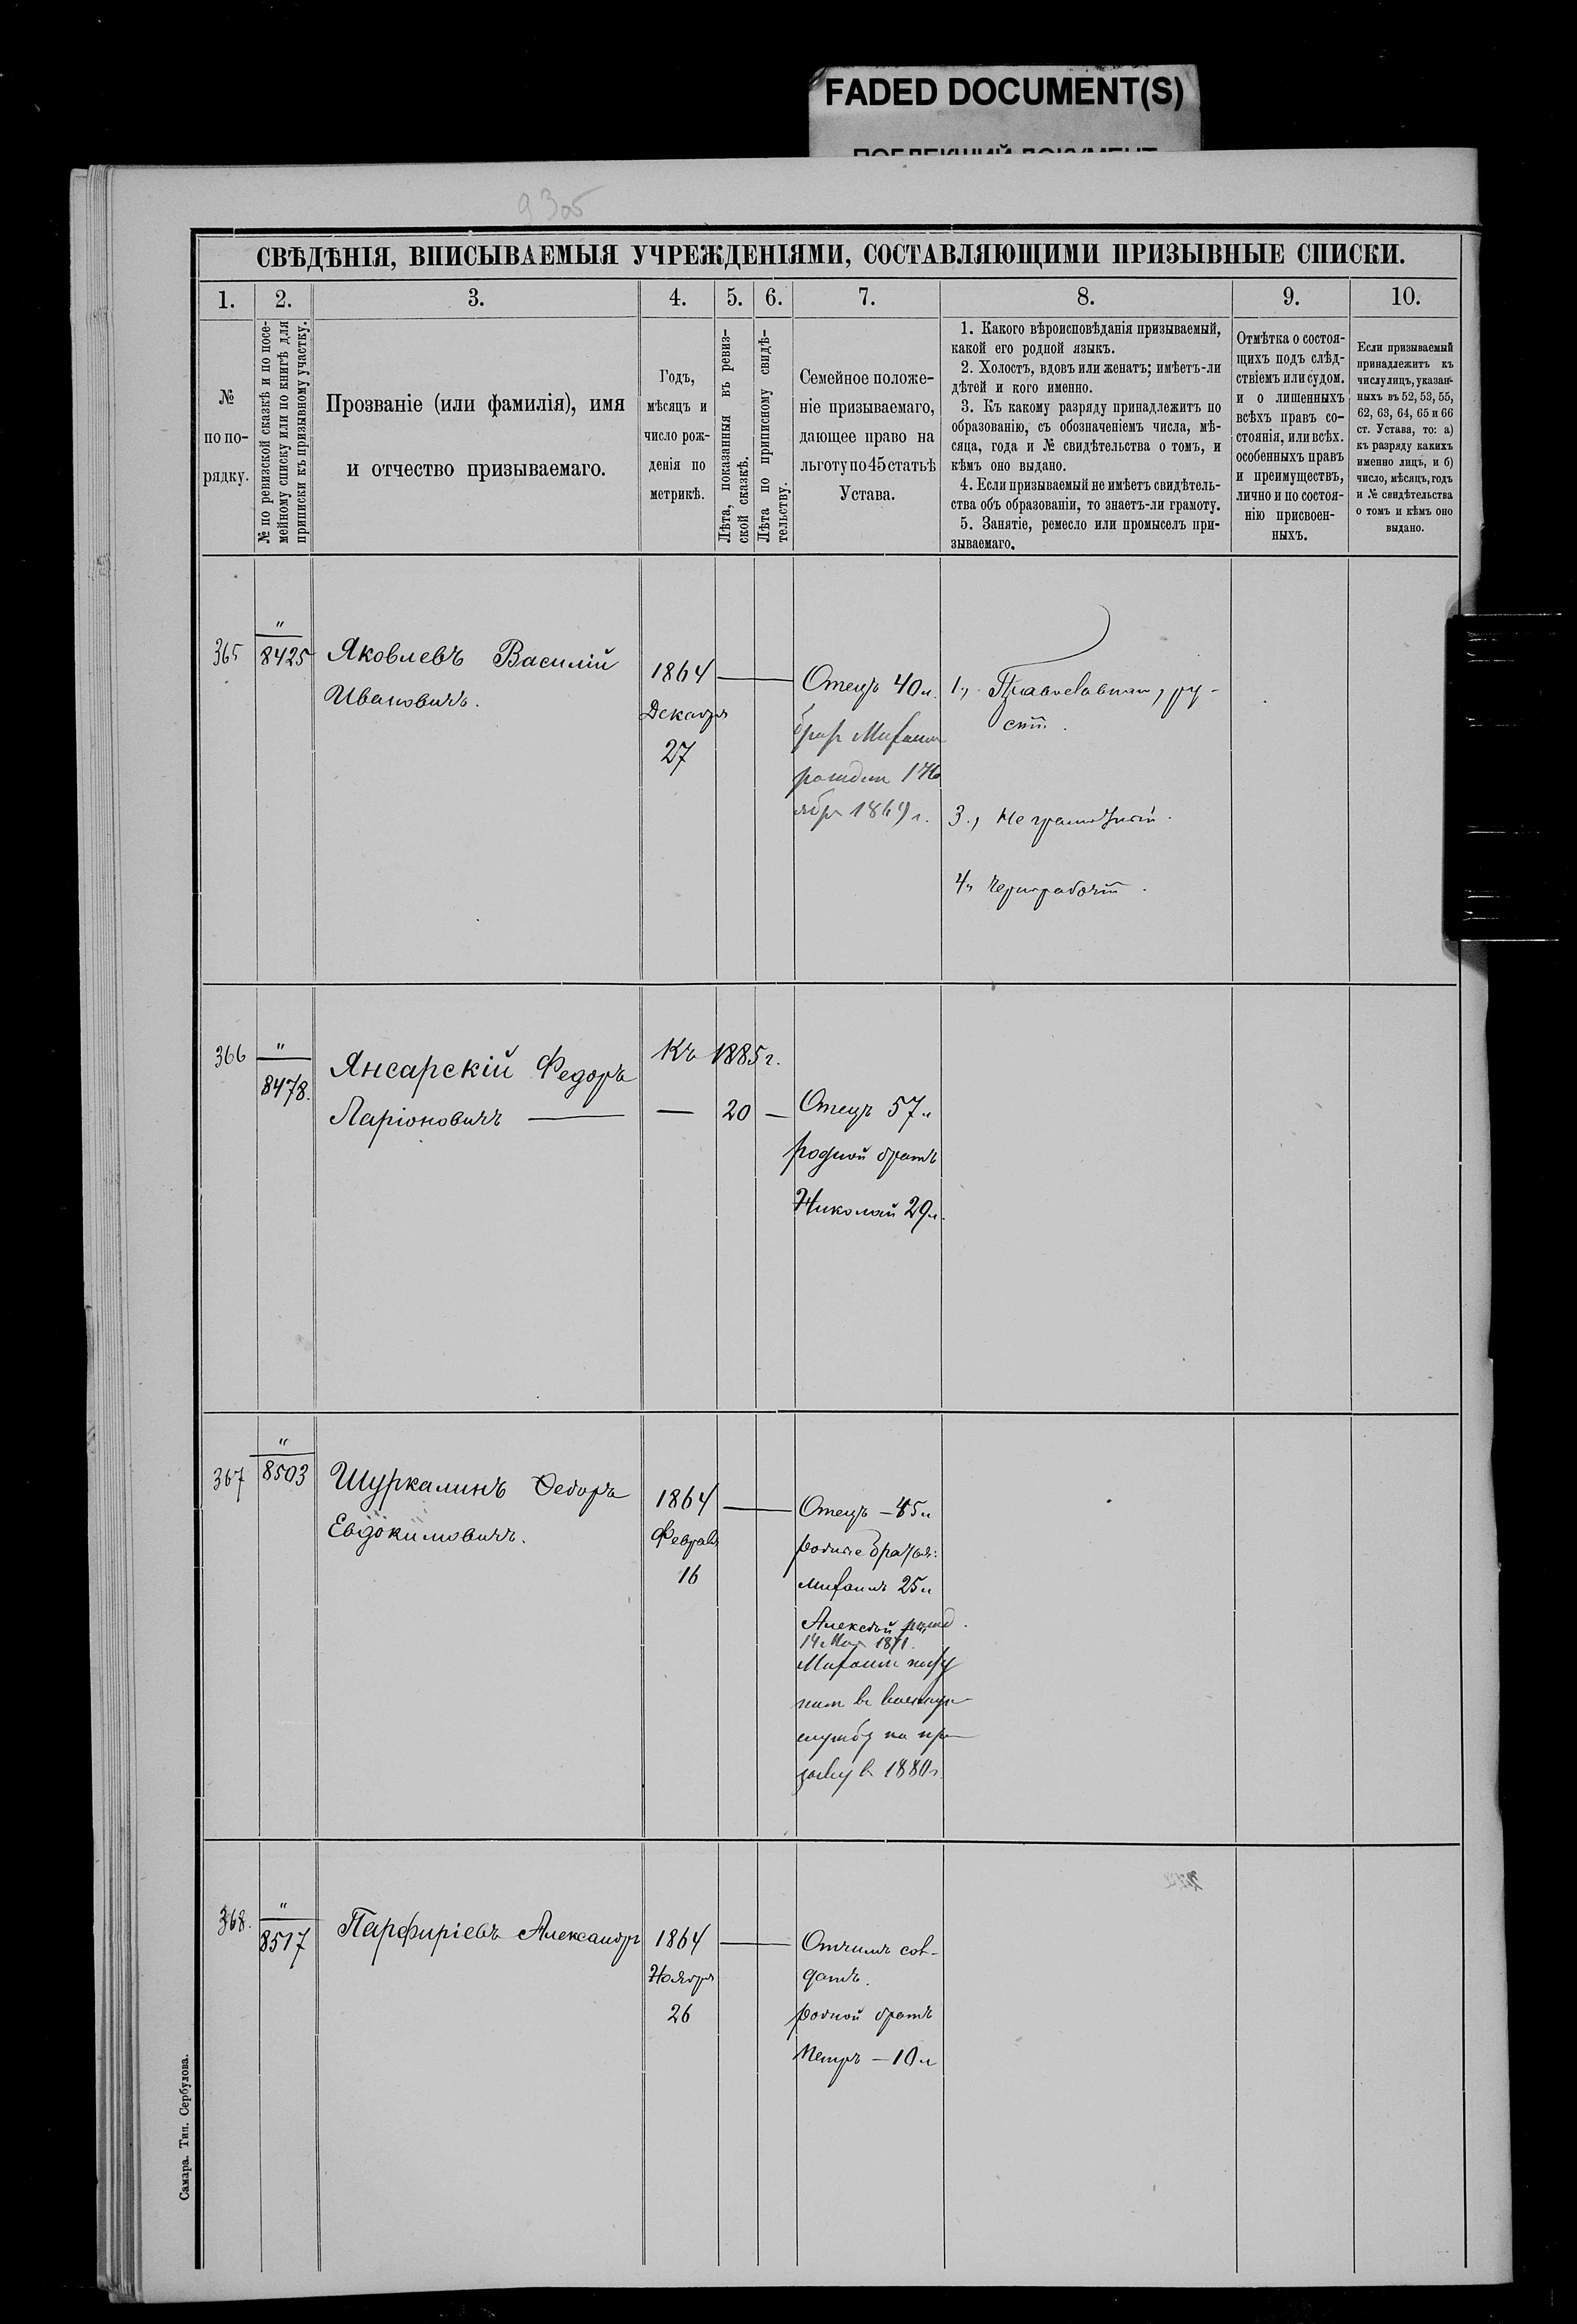 FADED DOCUMENT(S)
ПОБЛЕКШИЙ ДОКУМЕНТ
9305
СВѢДѢНІЯ, ВПИСЫВАЕМЫЯ УЧРЕЖДЕНІЯМИ, СОСТАВЛЯЮЩИМИ ПРИЗЫВНЫЕ СПИСКИ.
1.
2.
3.
4.
5.
6.
7.
8.
9.
10.
№
по по-
рядку.
№ по ревизской сказкѣ и по посе-
мейному списку или по книгѣ для
приписки къ призывному участку.
Прозваніе (или фамилія), имя
и отчество призываемаго.
Годъ,
мѣсяцъ и
число рож-
денія по
метрикѣ.
Лѣта, показанныя въ ревиз-
ской сказкѣ.
Лѣта по приписному свидѣ-
тельству.
Семейное положе-
ніе призываемаго,
дающее право на
льготу по 45 статьѣ
Устава.
1. Какого вѣроисповѣданія призываемый,
какой его родной языкъ.
2. Холостъ, вдовъ или женатъ; имѣетъ-ли
дѣтей и кого именно.
3. Къ какому разряду принадлежитъ по
образованію, съ обозначеніемъ числа, мѣ-
сяца, года и № свидѣтельства о томъ, и
кѣмъ оно выдано.
4. Если призываемый не имѣетъ свидѣтель-
ства объ образованіи, то знаетъ-ли грамоту.
5. Занятіе, ремесло или промыселъ при-
зываемаго.
Отмѣтка о состоя-
щихъ подъ слѣд-
ствіемъ или судомъ.
и о лишенныхъ
всѣхъ правъ со-
стоянія, или всѣх.
особенныхъ правъ
и преимуществъ,
лично и по состоя-
нію присвоен-
ныхъ.
Если призываемый
принадлежитъ къ
числу лицъ, указан-
ныхъ въ 52, 53, 55,
62, 63, 64, 65 и 66
ст. Устава, то: а)
къ разряду какихъ
именно лицъ, и б)
число, мѣсяцъ, годъ
и № свидѣтельства
о томъ и кѣмъ оно
выдано.
365
"
8425
Яковлевъ Василій
Ивановичъ.
1864
Декабря
27
Отецъ 40 л.
братъ Михаилъ
рожден 1 Но
ября 1869 г.
1., Православнаго, ру-
скій.
3., Неграмотный.
4., Чернорабочій.
366
"
8478.
Янсарскій Федоръ
Ларіоновичъ —
Къ 1885 г.
— 20 —
Отецъ 57 л
родной братъ
Николай 29 л.
367
"
8503
Шуркалинъ Федоръ
Евдокимовичъ.
1864
Февраля
16
Отецъ — 45 л
родные братья:
Михаилъ 25 л
Алексѣй рожд.
14 Мая 1871.
Михаилъ посту
пил въ военную
службу по при
зыву въ 1880 г.
368.
"
8517
Парфиріевъ Александръ
1864
Ноября
26
Отчимъ сол-
датъ.
родной братъ
Петръ — 10 л
Самара. Тип. Сербулова.